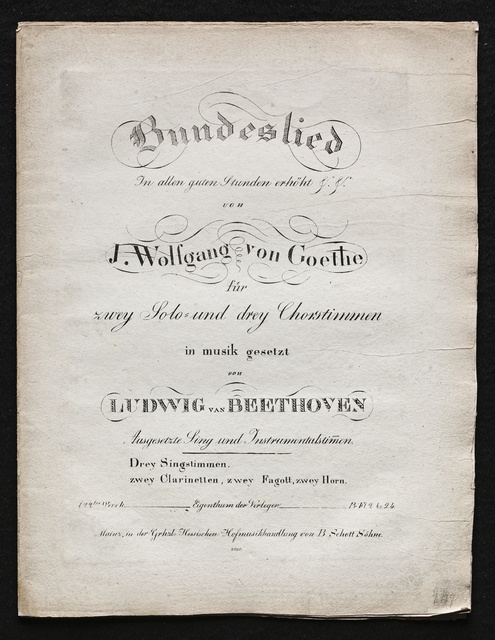 Bundeslied
In allen guten Stunden erhöht &. &.
von
J. Wolfgang von Goethe
für
zwey Solo= und drey Chorstimmen
in musik gesetzt
von
LUDWIG VAN BEETHOVEN
Ausgesetzte Sing und Instrumentalstim̅en.
Drey Singstimmen.
zwey Clarinetten, zwey Fagott, zwey Horn.
Eigenthum der Verleger
Mainz, in der Grhzl. Hessischen Hofmusikhandlung von B. Schott Söhne.